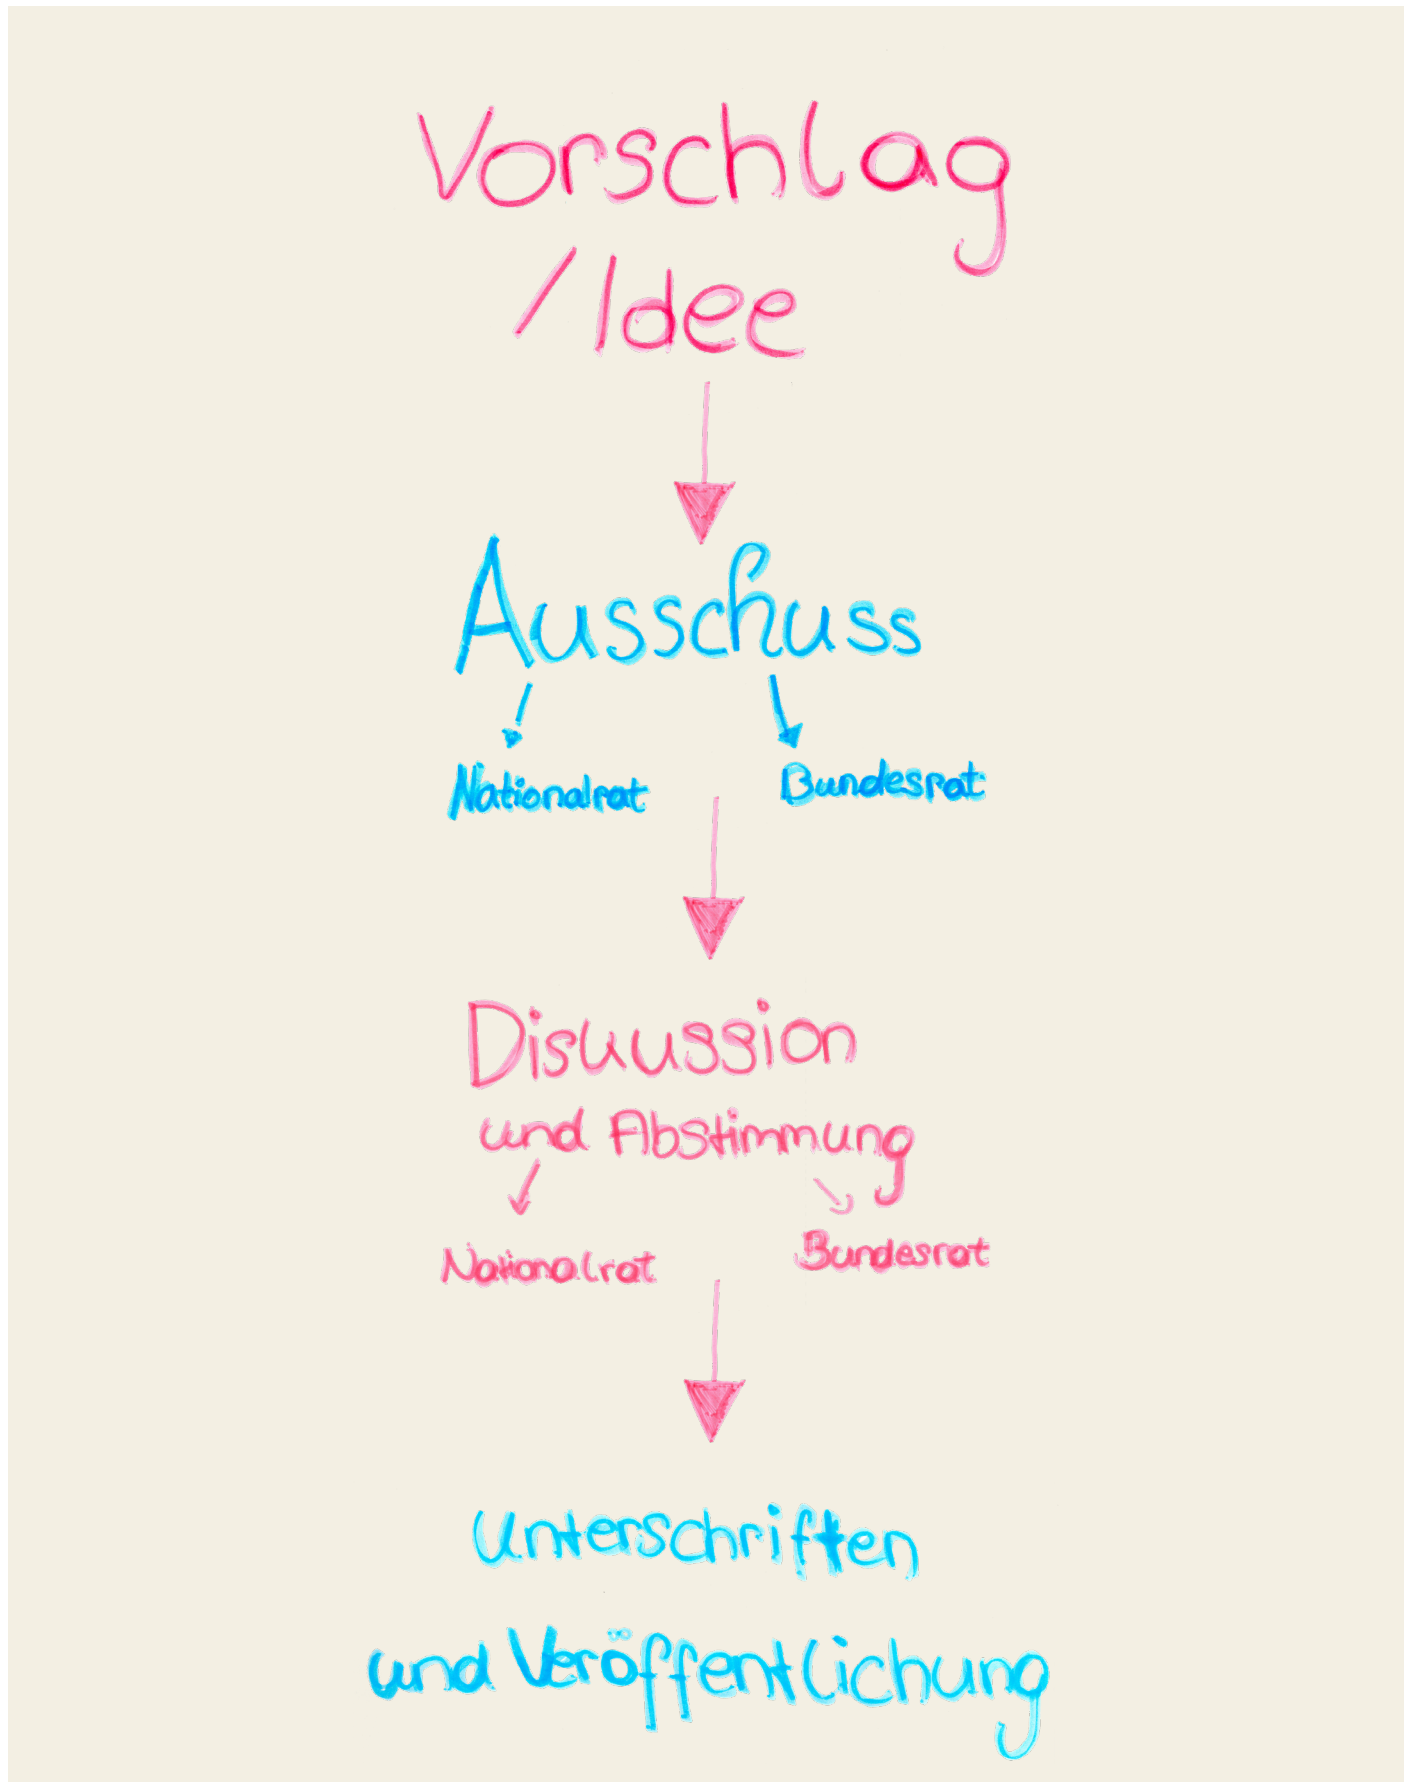 Vorschlag
/Idee
Ausschuss
Nationalrat Bundesrat
Diskussion
und Abstimmung
Nationalrat Bundesrat
Unterschriften
und Veröffentlichung